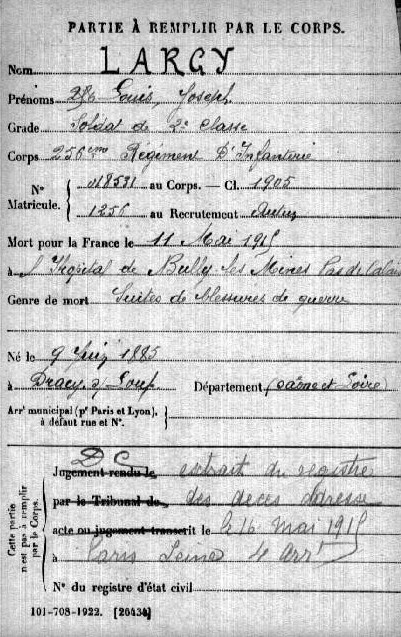 PARTIE À REMPLIR PAR LE CORPS.
Nom LARGY
Prénoms Louis, Joseph
Grade Soldat de 2e Classe
Corps 256eme Régiment D'Infanterie
N° Matricule. { 018531 au Corps. — Cl. 1905
1256 au Recrutement Autun
Mort pour la France le 11 Mai 1915
à l'Hopital de Bully les Mines Pas de Calais
Genre de mort Suites de blessures de guerre
Né le 9 Juin 1885
à Dracy s/ Loup Département Saône et Loire
Arrt municipal (pr Paris et Lyon), à défaut rue et N°.
Cette partie n'est pas à remplir par le Corps.
DC
Jugement rendu le extrait du registre
par le Tribunal de des décès dressé
acte ou jugement transcrit le le 16 mai 1915
à Paris Seine 4 Arrt
N° du registre d'état civil
101-708-1922. [26434]